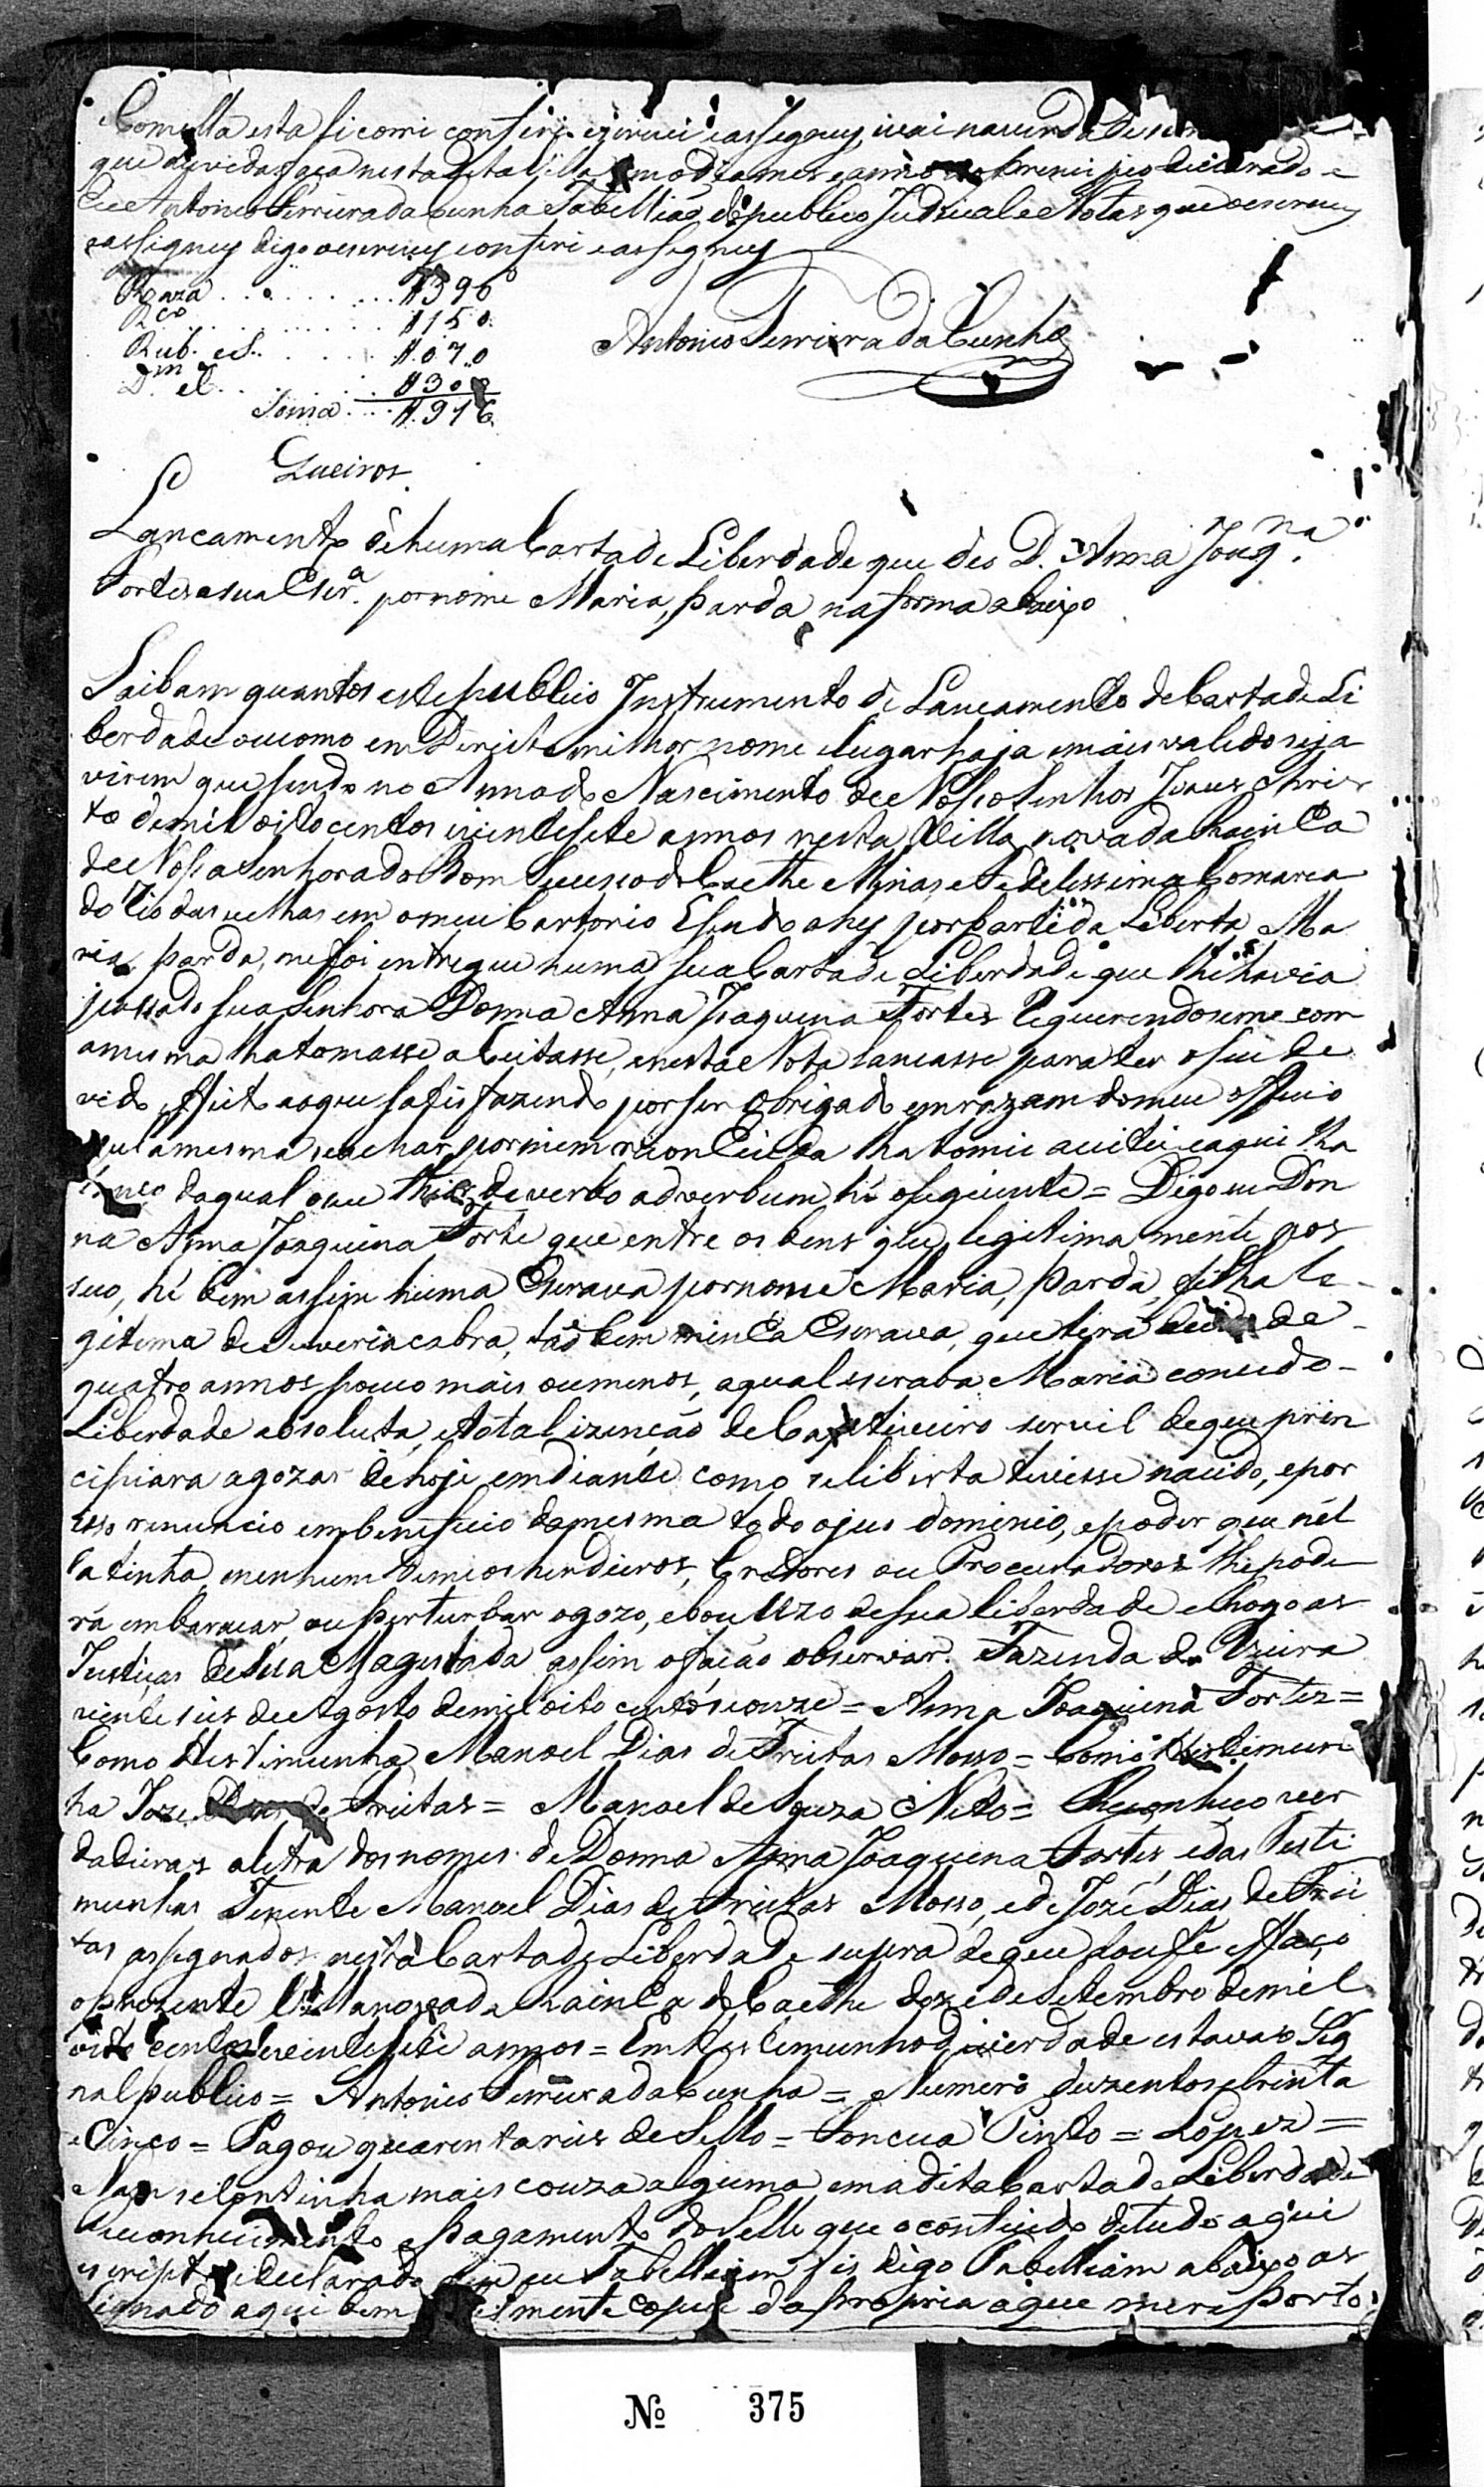 Com esta ficou conferi escrevi e assigney, e vai na verda de sem
que duvida faça nesta dita Villa no dia mes e anno ao principio declarado e
Eu Antonio Ferreira da Cunha Tabelliaõ do publico Judicial e Notas que o escrevy
e assigney digo o escrevy conferi e assigney
Raza . . . . . . . $396
Rco . . . . . . . $150
Rub. e S. . . . . . $070
Dm el . . . . . . $300
Soma . . . . $.916
Antonio Ferreira da Cunha
Queiros
Lançamento de huma Carta de Liberdade que deo D. Anna Joaq.na
Fortes a sua Escr.a por nome Maria, parda, na forma abaixo
Saibam quantos este publico Instrumento de Lancamento de Carta de Li
berdade ou como em Direito milhor nome e lugar haja e mais valido seja
virem que sendo no Anno do Nascimento de Nosso Senhor Jesus Chris
to de mil oito centos e vinte sete annos nesta Villa nova da Rainha
de Nossa Senhora do Bom Sucesso do Caethe Minas e Fidelissima Comarca
do Rio das velhas em o meu Cartorio Esendo ahy por parte da Liberta Ma
ria, parda, me foi entregue huma sua Carta de Liberdade que lhe havia
passado sua Senhora Donna Anna Joaquina Fortes Requerendoseme com
a mesma lha tomasse aCeitasse, e nesta Nota lancasse para ter o seu de
vido effeito ao que satisfazendo por ser obrigado em razam do meu officio
pela mesma se achar por mim reconhecida lha tomei aceitei e aqui lha
lanço da qual o seu theor de verbo adverbum hé o seguinte = Digo eu Don
na Anna Joaquina Forte que entre os bens que legitimamente pos
suo, hé bem assim huma Escrava por nome Maria, parda, filha le-
gitima de Severia cabra, taõ bem minha Escrava, que terá de
quatro annos pouco mais ou menos, a qual escrava Maria concedo-
Liberdade absoluta, e total izenção de Captiveiro servil de que prin
cipiara a gozar de hoje em diante como se liberta tivesse nacido, e por
isso renuncio em beneficio da mesma todo o jus dominio, e poder que nél
la tinha, e nenhum de meos herdeiros, Credores ou Procuradores lhe pode
rá embaracar, ou perturbar o gozo, e bou uzo de sua liberdade e Rogo as
Justiças de Sua Magestade assim o facão observar. Fazenda da Vieira
vinte seis de Agosto de mil oito centos e onze = Anna Joaquina Fortes =
Como testimunha Manoel Dias de Freitas Mosso = Como testemun
ha Joze Dias de Freitas = Manoel de Souza Neto = Reconheço ver
dadeiras a letra dos nomes de Donna Anna Joaquina Fortes, e das Testi
munhas Tenente Manoel Dias de Freitas Mosso, e de Jozé Dias de Frei
tas assignados nesta Carta de Liberdade supra de que dou fé e faço
o prezente Villa nova da Rainha do Caethe doze de Setembro de mil
oito centos e vinte sete annos = Em testemunho de verdade estava o Sig
nal publico = Antonio Ferreira da Cunha = Numero duzentos e trinta
e Cinco = Pagou quarenta reis de Sello = Pinto = Lopes =
Nam se continha mais couza alguma em a dita Carta de Liberdade
Reconhecimento e pagamento do Sello que o contheudo de tudo aqui
escripto e declarado eu Tabelliam fis digo Tabelliam abaixo as
signado aqui bem e fielmente copiei da propria a que me reporto
Nº 375